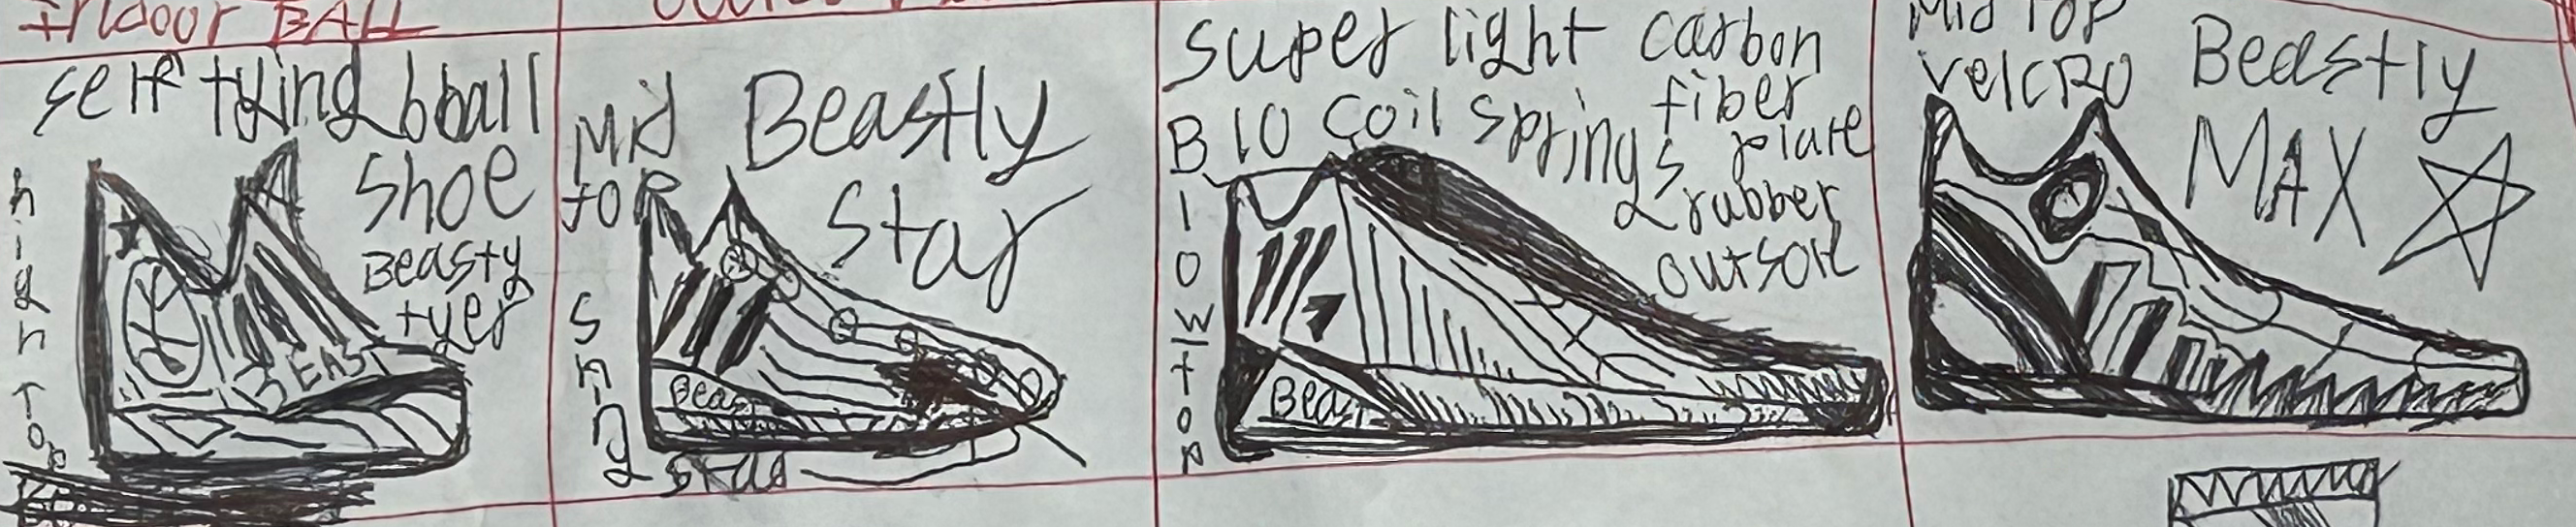 Indoor BALL
self tying bball
shoe
Beasty
tyer
high Top
BEAST
Mid
top
Beastly
star
Beas
super light carbon
fiber
B 10 coil springs plate
& rubber
outsole
lowtop
Beas
Mid Top
velcro
Beastly
MAX